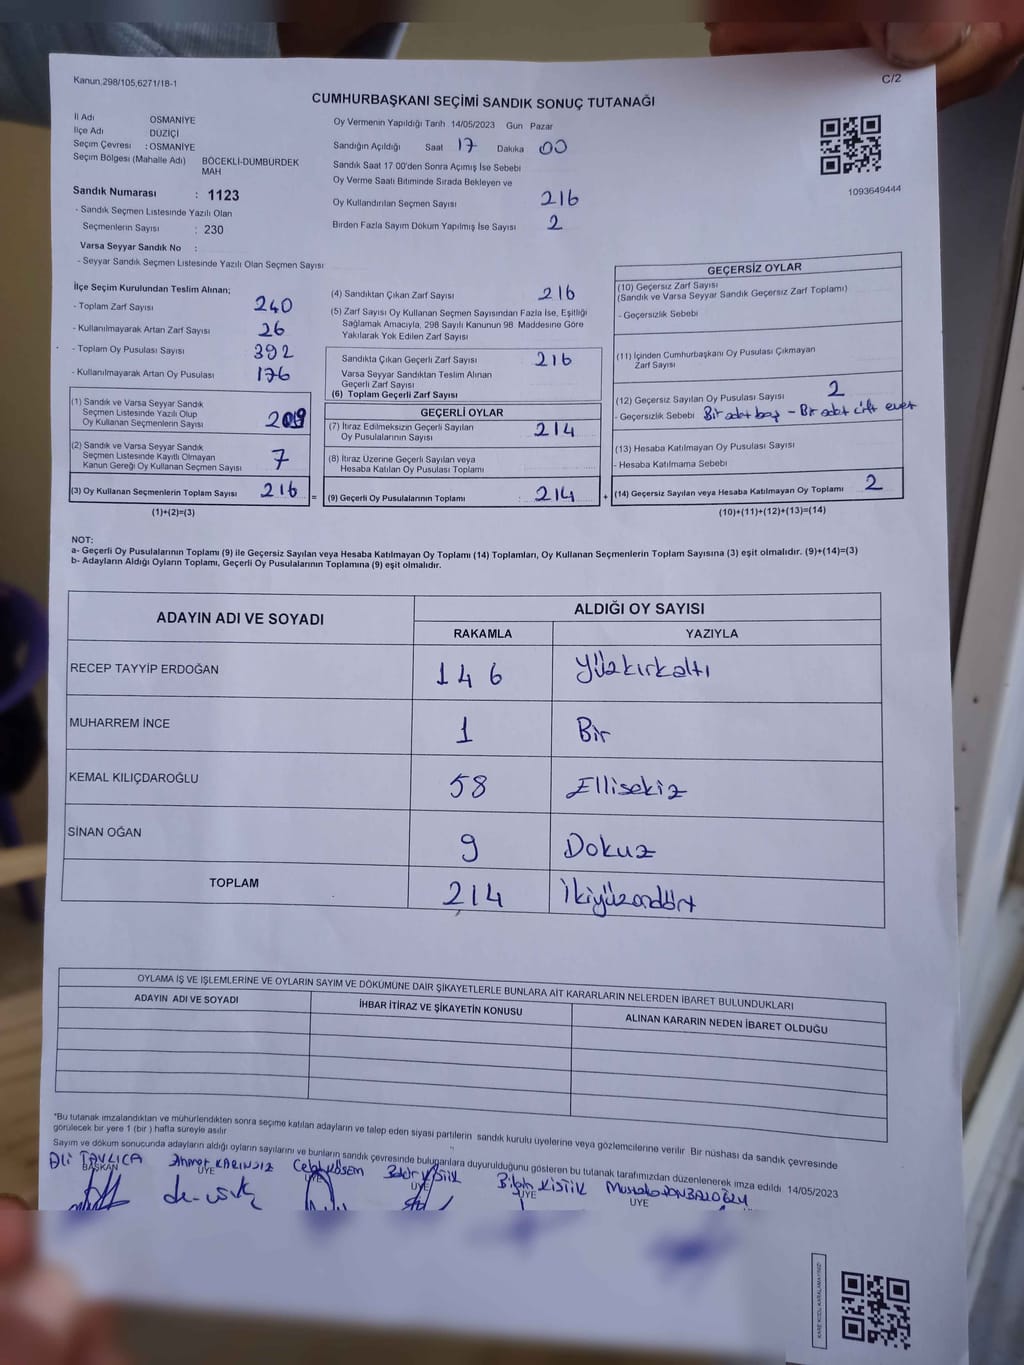 Kanun, 298/105,6271/18-1
C/2
CUMHURBAŞKANI SEÇİMİ SANDIK SONUÇ TUTANAĞI
İl Adı OSMANİYE
İlçe Adı DÜZİÇİ
Seçim Çevresi : OSMANİYE
Seçim Bölgesi (Mahalle Adı) BÖCEKLİ-DUMBURDEK MAH
Sandık Numarası : 1123
- Sandık Seçmen Listesinde Yazılı Olan
Seçmenlerin Sayısı : 230
Varsa Seyyar Sandık No :
- Seyyar Sandık Seçmen Listesinde Yazılı Olan Seçmen Sayısı
Oy Vermenin Yapıldığı Tarih 14/05/2023 Gün Pazar
Sandığın Açıldığı Saat 17 Dakika 00
Sandık Saat 17 00'den Sonra Açımış İse Sebebi
Oy Verme Saati Bitiminde Sırada Bekleyen ve
Oy Kullandırılan Seçmen Sayısı 216
Birden Fazla Sayım Döküm Yapılmış İse Sayısı 2
1093649444
İlçe Seçim Kurulundan Teslim Alınan;
- Toplam Zarf Sayısı 240
- Kullanılmayarak Artan Zarf Sayısı 26
- Toplam Oy Pusulası Sayısı 392
- Kullanılmayarak Artan Oy Pusulası 176
(1) Sandık ve Varsa Seyyar Sandık
Seçmen Listesinde Yazılı Olup
Oy Kullanan Seçmenlerin Sayısı 209
(2) Sandık ve Varsa Seyyar Sandık
Seçmen Listesinde Kayıtlı Olmayan
Kanun Gereği Oy Kullanan Seçmen Sayısı 7
(3) Oy Kullanan Seçmenlerin Toplam Sayısı 216 =
(1)+(2)=(3)
(4) Sandıktan Çıkan Zarf Sayısı 216
(5) Zarf Sayısı Oy Kullanan Seçmen Sayısından Fazla İse, Eşitliği
Sağlamak Amacıyla, 298 Sayılı Kanunun 98 Maddesine Göre
Yakılarak Yok Edilen Zarf Sayısı
Sandıkta Çıkan Geçerli Zarf Sayısı 216
Varsa Seyyar Sandıktan Teslim Alınan
Geçerli Zarf Sayısı
(6) Toplam Geçerli Zarf Sayısı
GEÇERLİ OYLAR
(7) İtiraz Edilmeksizin Geçerli Sayılan
Oy Pusulalarının Sayısı 214
(8) İtiraz Üzerine Geçerli Sayılan veya
Hesaba Katılan Oy Pusulası Toplamı
(9) Geçerli Oy Pusulalarının Toplamı : 214 +
GEÇERSİZ OYLAR
(10) Geçersiz Zarf Sayısı
(Sandık ve Varsa Seyyar Sandık Geçersiz Zarf Toplamı)
- Geçersizlik Sebebi
(11) İçinden Cumhurbaşkanı Oy Pusulası Çıkmayan
Zarf Sayısı
(12) Geçersiz Sayılan Oy Pusulası Sayısı 2
- Geçersizlik Sebebi Bir adet boş - Bir adet çift evet
(13) Hesaba Katılmayan Oy Pusulası Sayısı
- Hesaba Katılmama Sebebi
(14) Geçersiz Sayılan veya Hesaba Katılmayan Oy Toplamı 2
(10)+(11)+(12)+(13)=(14)
NOT:
a- Geçerli Oy Pusulalarının Toplamı (9) ile Geçersiz Sayılan veya Hesaba Katılmayan Oy Toplamı (14) Toplamları, Oy Kullanan Seçmenlerin Toplam Sayısına (3) eşit olmalıdır. (9)+(14)=(3)
b- Adayların Aldığı Oyların Toplamı, Geçerli Oy Pusulalarının Toplamına (9) eşit olmalıdır.
ADAYIN ADI VE SOYADI ALDIĞI OY SAYISI
RAKAMLA YAZIYLA
RECEP TAYYİP ERDOĞAN 146 Yüzkırkaltı
MUHARREM İNCE 1 Bir
KEMAL KILIÇDAROĞLU 58 Ellisekiz
SİNAN OĞAN 9 Dokuz
TOPLAM 214 İkiyüzondört
OYLAMA İŞ VE İŞLEMLERİNE VE OYLARIN SAYIM VE DÖKÜMÜNE DAİR ŞİKAYETLERLE BUNLARA AİT KARARLARIN NELERDEN İBARET BULUNDUKLARI
ADAYIN ADI VE SOYADI İHBAR İTİRAZ VE ŞİKAYETİN KONUSU ALINAN KARARIN NEDEN İBARET OLDUĞU
*Bu tutanak imzalandıktan ve mühürlendikten sonra seçime katılan adayların ve talep eden siyasi partilerin sandık kurulu üyelerine veya gözlemcilerine verilir Bir nüshası da sandık çevresinde
görülecek bir yere 1 (bir ) hafta süreyle asılır
Sayım ve döküm sonucunda adayların aldığı oyların sayılarını ve bunların sandık çevresinde bulunanlara duyurulduğunu gösteren bu tutanak tarafımızdan düzenlenerek imza edildi 14/05/2023
Ali TAVLICA Ahmet KARINSIZ Celal KÖSEN Bilgin KISTIK
BAŞKAN ÜYE ÜYE ÜYE ÜYE ÜYE
KARE KODU KARALAMAYINIZ!